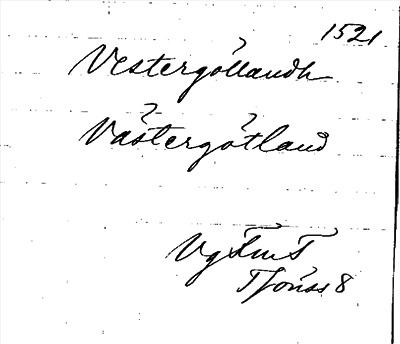 1521
Vestergöllandh
Västergötland
Vg FmT